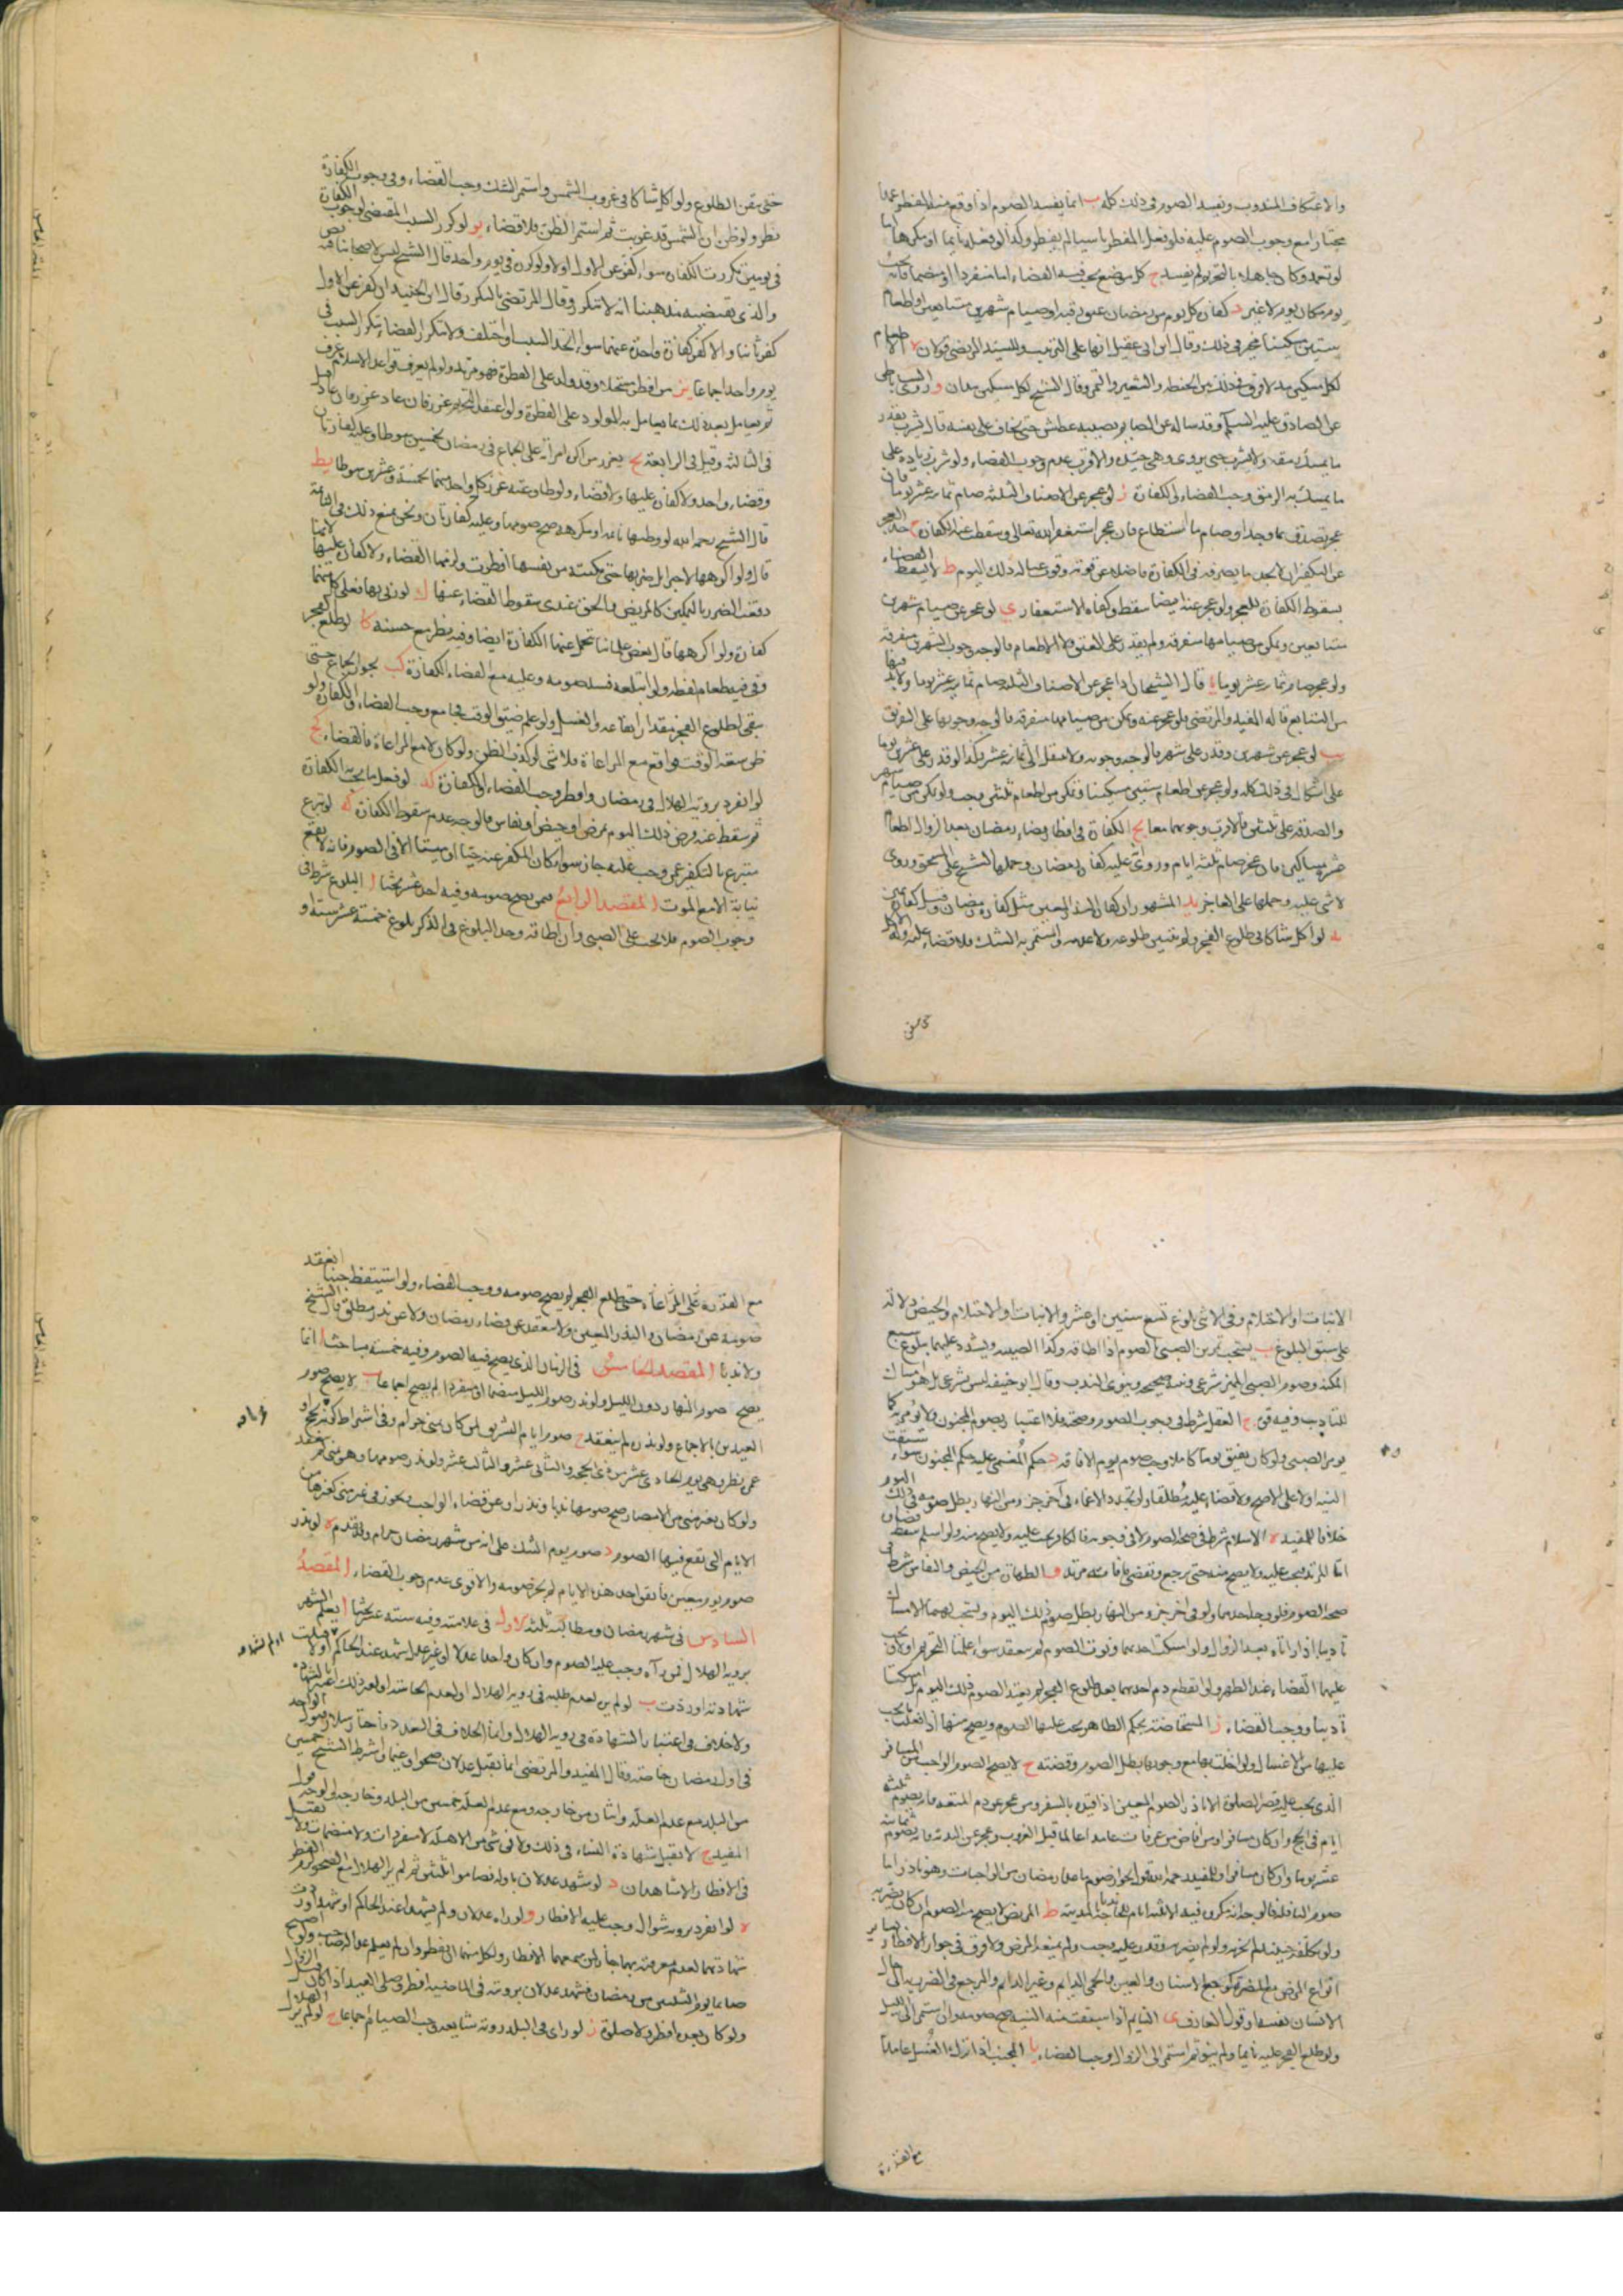 والاعتكاف المندوب ويفسد الصوم في ذلك كله ب انما يفسد الصوم اذا وقع منه المفطر عمدا
مختارا مع وجوب الصوم عليه فلو فعل المفطر ناسيا لم يفطر وكذا لو فعله نايما او مكرها اما
لو تعمد وكان جاهلا بالتحريم لم يفسد ج كل موضع يجب فيه القضاء اما منفردا او منضما فانه يجب
يوم مكان يوم لا غير د كفارة كل يوم من رمضان عتق رقبة او صيام شهرين متتابعين او اطعام
ستين مسكينا مخير في ذلك وقال ابن ابي عقيل انها على الترتيب وللسيد المرتضى قولان ه اطعام
لكل مسكين مد لا فرق في ذلك بين الحنطة والشعير والتمر وقال الشيخ لكل مسكين مدان و روى الساباطي
عن الصادق عليه السلم وقد ساله عن الصايم يصيبه عطش حتى يخاف على نفسه قال يشرب بقدر
ما يمسك رمقه ولا يشرب حتى يروى وهي جيدة والاقرب عدم وجوب القضاء ولو شرب زيادة على
ما يمسك به الرمق وجب القضاء والكفارة ز لو عجز عن الاصناف الثلثة صام ثمانية عشر يوما فان
عجز تصدق بما وجد او صام ما استطاع فان عجز استغفر الله تعالى وسقطت عنه الكفارة ح حد العجز
عن التكفير ان لا يجد ما يصرفه في الكفارة فاضلا عن قوته وقوت عياله ذلك اليوم ط لا يسقط القضاء
بسقوط الكفارة للعجز ولو عجز عنه ايضا سقط وكفاه الاستغفار ي لو عجز عن صيام شهرين
متتابعين وتمكن من صيامها متفرقة ولم يقدر على العتق ولا الاطعام فالوجه وجوب الشهرين متفرقة
ولو عجز صام ثمانية عشر يوما يا قال الشيخان اذا عجز عن الاصناف الثلثة صام ثمانية عشر يوما ولا بد فيها
من التتابع قاله المفيد والمرتضى فلو عجز عنه وتمكن من صيامها متفرقة فالوجه وجوبها على التفريق
يب لو عجز عن شهرين وقدر على شهر فالوجه وجوبه ولا ينتقل الى ثمانية عشر وكذا لو قدر على عشرين يوما
على اشكال في ذلك كله ولو عجز عن اطعام ستين مسكينا وتمكن من اطعام ثلثين وجب ولو تمكن من صيام شهر
والصدقة على ثلثين فالاقرب وجوبهما معا يج الكفارة في افطار قضاء رمضان بعد الزوال اطعام
عشرة مساكين فان عجز صام ثلثة ايام وروي ان عليه كفارة رمضان وحملها الشيخ على المستحق وروي
لا شي عليه وحملها على العاجز يد المشهور ان كفارة النذر المعين مثل كفارة رمضان وقيل كفارة يمين
يه لو اكل شاكا في طلوع الفجر ولم يتبين طلوعه ولا عدمه واستمر به الشك فلا قضاء عليه وله الاكل
حتى يتيقن الطلوع ولو اكل شاكا في غروب الشمس واستمر الشك وجب القضاء وفي وجوب الكفارة
نظر ولو ظن ان الشمس قد غربت ثم استمر الظن فلا قضاء يو لو كرر السبب المقتضي لوجوب الكفارة
في يومين تكررت الكفارة سواء كفر عن الاول او لا ولو كرر في يوم واحد قال الشيخ ليس لاصحابنا فيه نص
والذي يقتضيه مذهبنا انه لا تتكرر وقال المرتضى بالتكرر وقال ابن الجنيد ان كفر عن الاول
كفر ثانيا والا كفر كفارة واحدة عنهما سواء اتحد السبب او اختلف ولا يتكرر القضاء بتكرر السبب في
يوم واحد اجماعا يز من افطر مستحلا وقد ولد على الفطرة فهو مرتد ولو لم يعرف قواعد الاسلام عرف
ثم يعامل بعد ذلك بما يعامل به المولود على الفطرة ولو اعتقد التحريم عزر فان عاد عزر فان عاد قتل
في الثالثة وقيل في الرابعة يح يعزر من اكره امراته على الجماع في رمضان بخمسين سوطا وعليه كفارتان
وقضاء واحد ولا كفارة عليها ولا قضاء ولو طاوعته عزر كل واحد منهما بخمسة وعشرين سوطا يط
قال الشيخ رحمه الله لو وطئها نائمة او مكرهة صح صومهما وعليه كفارتان ونحن نمنع ذلك في النائمة
قال ولو اكرهها لا جبرا بل ضربها حتى مكنته من نفسها افطرت ولزمها القضاء ولا كفارة عليها لانها
دفعت الضرر بالتمكين كالمريض والحق عندي سقوط القضاء عنها ك لو زنى بها فعلى كل منهما
كفارة ولو اكرهها قال بعض علمائنا تحمل عنها الكفارة ايضا وفيه نظر مع حسنه كا لو طلع الفجر
وفي فيه طعام لفظه ولو ابتلعه فسد صومه وعليه مع القضاء الكفارة كب يجوز الجماع حتى
يبقى لطلوع الفجر مقدار ايقاعه والغسل ولو علم ضيق الوقت فجامع وجب القضاء والكفارة ولو
ظن سعة الوقت فواقع مع المراعاة فلا شي لو كذب الظن ولو كان لا مع المراعاة فالقضاء كج
لو انفرد بروية الهلال في رمضان وافطر وجب القضاء والكفارة كد لو فعل ما يجب به الكفارة
ثم سقط عنه فرض ذلك اليوم بمرض او حيض او نفاس فالوجه عدم سقوط الكفارة كه لو تبرع
متبرع بالتكفير عمن وجب عليه جاز سواء كان المكفر عنه حيا او ميتا الا في الصوم فانه لا يقع
نيابة الا مع الموت المقصد الرابع فيمن يصح صومه وفيه احد عشر بحثا ا البلوغ شرط في
وجوب الصوم فلا يجب على الصبي وان اطاقه وحد البلوغ في الذكر بلوغ خمسة عشر سنة او
الانبات او الاحتلام وفي الانثى بلوغ تسع سنين او عشر والانبات او الاحتلام والحيض دلالة
على سبق البلوغ ب يستحب تمرين الصبي بالصوم اذا اطاقه وكذا الصبية ويشدد عليهما ببلوغ سبع
المكنة وصوم الصبي المميز شرعي ونيته صحيحة وينوي الندب وقال ابو حنيفة ليس بشرعي بل هو امساك
للتاديب وفيه قوة ج العقل شرط في وجوب الصوم وصحته فلا اعتبار بصوم المجنون ولا يومر به كما
يومر الصبي ولو كان يفيق يوما كاملا وجب صوم يوم الافاقة د حكم المغمى عليه حكم المجنون سواء سبقت
النية او لا على الاصح ولا قضاء عليه مطلقا ولو تجدد الاغماء في آخر جزو من النهار بطل صومه في ذلك اليوم
خلافا للمفيد ه الاسلام شرط في صحة الصوم لا في وجوبه فالكافر يجب عليه ولا يصح منه ولو اسلم سقط قضاؤه
اما المرتد فيجب عليه ولا يصح منه حتى يرجع ويقضي ما فاته مرتدا و الطهارة من الحيض والنفاس شرط في
صحة الصوم فلو وجد احدهما ولو في اخر جزو من النهار بطل صوم ذلك اليوم ويستحب لهما الامساك
تاديبا اذا راتاه بعد الزوال ولو امسكت احدهما ونوت الصوم لم ينعقد سواء علمتا التحريم او لا ويجب
عليهما القضاء عند الطهر ولو انقطع دم احدهما بعد طلوع الفجر لم يعتد الصوم ذلك اليوم بل امسكتا
تاديبا ووجب القضاء ز المستحاضة بحكم الطاهر يجب عليها الصوم ويصح منها اذا فعلت ما يجب
عليها من الاغسال ولو اخلت بها مع وجوبها بطل الصوم وقضته ح لا يصح الصوم الواجب من المسافر
الذي يجب عليه قصر الصلوة الا ناذر الصوم المعين اذا قيده بالسفر ومن عجز عن دم المتعة فانه يصوم ثلثة
ايام في الحج وان كان مسافرا ومن افاض من عرفات عامدا عالما قبل الغروب وعجز عن البدنة فانه يصوم ثمانية
عشر يوما وان كان مسافرا وللمفيد رحمه الله قول بجواز صوم ما عدا رمضان من الواجبات وهو نادر اما
صوم النافلة فالوجه انه مكروه فيه الا ثلثة ايام للحاجة ندبا بالمدينة ط المريض لا يصح منه الصوم ان كان يضر به
ولو تكلفه حينئذ لم يجزه ولو لم يضر به وقدر عليه وجب ولم يمنعه المرض ولا فرق في جواز الافطار بساير
انواع المرض مع المضرة كوجع الاسنان والعين والحمى الدايم وغير الدايم والمرجع في الضرر به الى حال
الانسان نفسه او قول العارف ى النايم اذا سبقت منه النية صح صومه وان استمر الى الليل
ولو طلع الفجر عليه نايما ولم ينو ثم استمر الى الزوال وجب القضاء يا المجنب اذا ترك الغسل عامدا
مع القدرة
مع القدرة على المراعاة حتى يطلع الفجر لم يصح صومه ووجب القضاء ولو استيقظ جنبا انعقد
صومه عن رمضان والنذر المعين ولا ينعقد عن قضاء رمضان ولا عن نذر مطلق قال الشيخ
ولا ندبا المقصد الخامس في الزمان الذي يصح فيه الصوم وفيه خمسة مباحث ا انما
يصح صوم النهار دون الليل ولو نذر صوم الليل منضما او منفردا لم يصح اجماعا ب لا يصح صوم
العيدين بالاجماع ولو نذره لم ينعقد ج صوم ايام التشريق لمن كان بمنى حرام وفي اشتراط كونه بحج او
عمرة نظر وهي يوم الحادي عشر من ذي الحجة والثاني عشر والثالث عشر ولو نذر صومها وهو بمنى لم ينعقد
ولو كان بغير منى من الامصار صح صومها ندبا ونذرا وعن قضاء الواجب يجوز في غير منى كغيرها من
الايام التي يقع فيها الصوم د صوم يوم الشك على انه من شهر رمضان حرام وقد تقدم ه لو نذر
صوم يوم معين فاتفق احد هذه الايام لم يجز صومه والاقوى عدم وجوب القضاء المقصد
السادس في شهر رمضان ومطالبه ثلثة الاول في علامته وفيه ستة عشر بحثا ا يعلم الشهر
بروية الهلال فمن رآه وجب عليه الصوم وان كان واحدا عدلا او غير عدل شهد عند الحاكم او لا قبلت
شهادته او ردت ب لو لم ير لعدم طلبه في روية الهلال او لعدم الحاسة او لغير ذلك اعتبر الشهادة
ولا خلاف في اعتبار الشهادة في روية الهلال وانما الخلاف في العدد فاختار سلار قبول الواحد
في اول رمضان خاصة وقال المفيد والمرتضى انما يقبل عدلان صحوا وغيما واشترط الشيخ خمسين
من البلد مع عدم العلة واثنان من خارجه ومع عدم العلة خمسين من البلد وخارجه والوجه قول
المفيد ج لا تقبل شهادة النساء في ذلك ولا في شي من الاهلة لا منفردات ولا منضمات ولا يقبل
في الافطار الا شاهدان د لو شهد عدلان باوله فصاموا ثلثين ثم لم ير الهلال مع الصحو لزم الفطر
ه لو انفرد بروية شوال وجب عليه الافطار و لو راه عدلان ولم يشهدا عند الحاكم او شهدا وردت
شهادتهما لعدم معرفته بهما جاز لمن سمعهما الافطار ولكل منهما ان يفطر وان لم يعلم عدالة صاحبه ولو اصبح
صايما يوم الثلثين من رمضان فشهد عدلان برويته في الماضية افطر وصلى العيد اذا كان قبل الزوال
ولو كان بعده افطر ولا صلوة ز لو راى في البلد روية شايعة وجب الصيام اجماعا ح لو لم ير الهلال